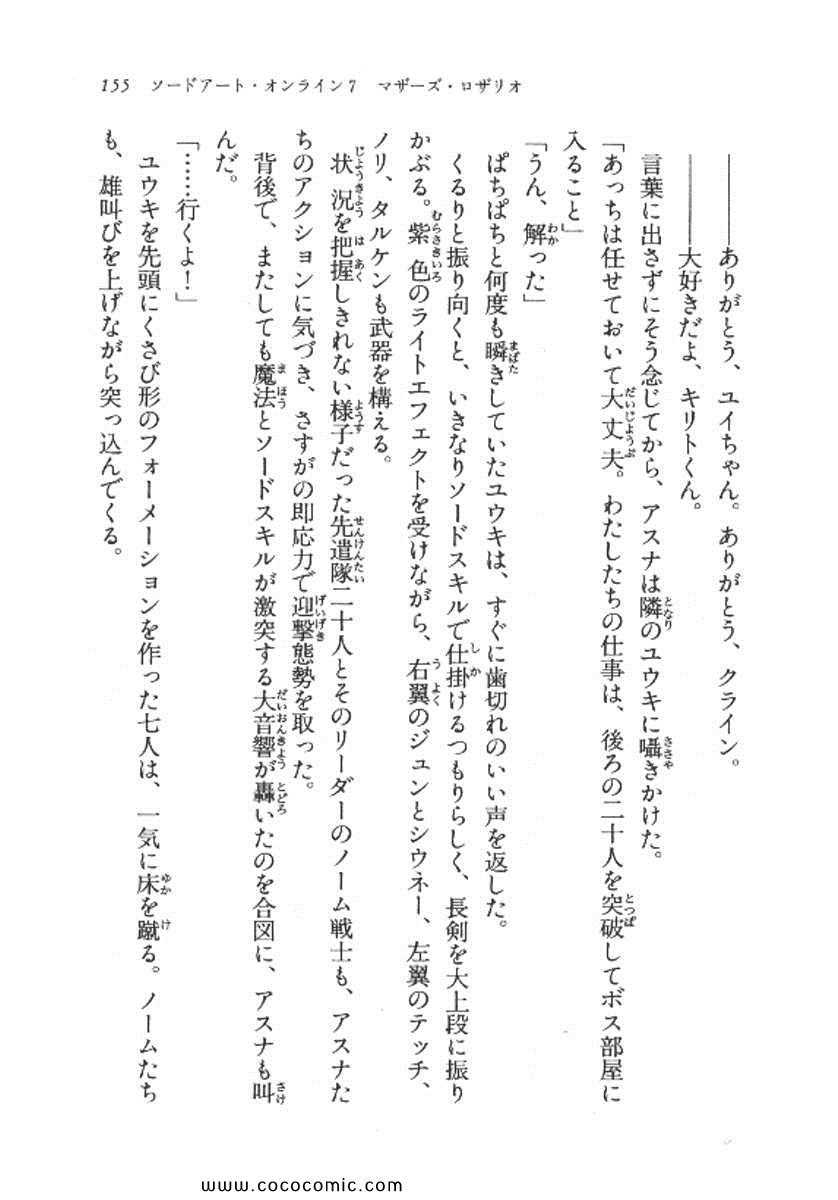 155　ソードアート・オンライン7　マザーズ・ロザリオ
――――ありがとう、ユイちゃん。ありがとう、クライン。
――――大好きだよ、キリトくん。
言葉に出さずにそう念じてから、アスナは隣のユウキに囁きかけた。
「あっちは任せておいて大丈夫。わたしたちの仕事は、後ろの二十人を突破してボス部屋に
入ること」
「うん、解った」
ぱちぱちと何度も瞬きしていたユウキは、すぐに歯切れのいい声を返した。
くるりと振り向くと、いきなりソードスキルで仕掛けるつもりらしく、長剣を大上段に振り
かぶる。紫色のライトエフェクトを受けながら、右翼のジュンとシウネー、左翼のテッチ、
ノリ、タルケンも武器を構える。
状況を把握しきれない様子だった先遣隊二十人とそのリーダーのノーム戦士も、アスナた
ちのアクションに気づき、さすがの即応力で迎撃態勢を取った。
背後で、またしても魔法とソードスキルが激突する大音響が轟いたのを合図に、アスナも叫
んだ。
「……行くよ！」
ユウキを先頭にくさび形のフォーメーションを作った七人は、一気に床を蹴る。ノームたち
も、雄叫びを上げながら突っ込んでくる。
www.cococomic.com